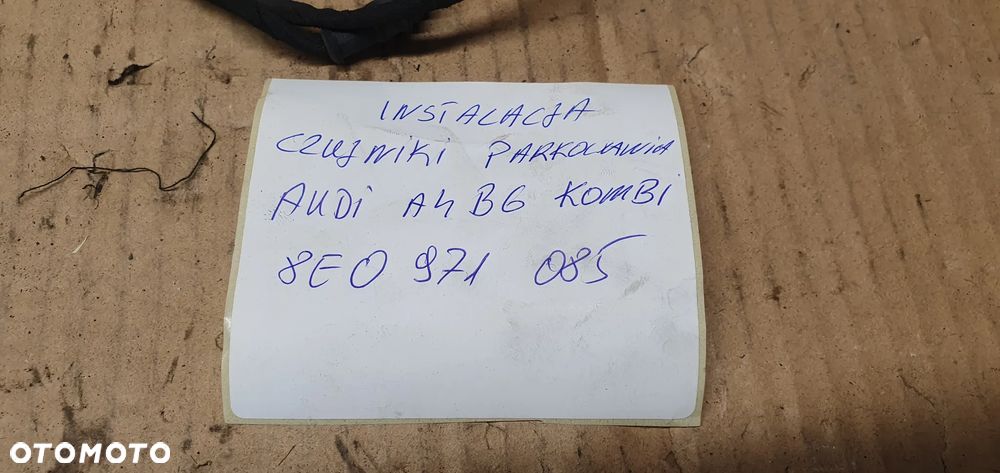 INSTALACJA
CZUJNIKI PARKOWANIA
AUDI A4 B6 KOMBI
8E0 971 085
OTOMOTO